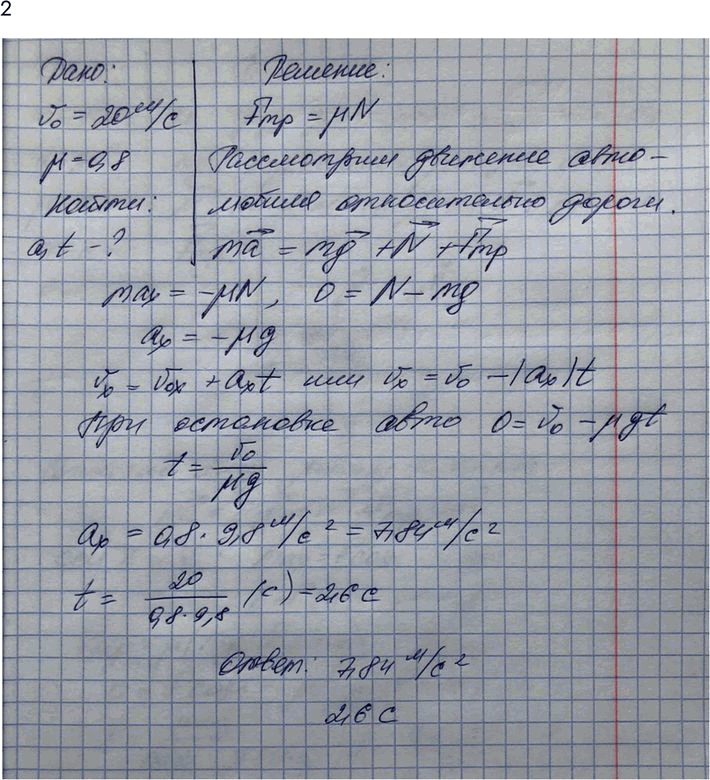 2
Дано: Решение:
v₀ = 20 м/с Fтр = μN
μ = 0,8 Рассмотрим движение авто-
Найти: мобиля относительно дороги.
a, t - ? ma⃗ = mg⃗ + N⃗ + F⃗тр
maₓ = -μN, 0 = N - mg
aₓ = -μg
vₓ = v₀ₓ + aₓt или vₓ = v₀ - |aₓ|t
При остановке авто 0 = v₀ - μgt
t = v₀/μg
aₓ = 0,8 · 9,8 м/с² = 7,84 м/с²
t = 20/0,8·9,8 (с) = 2,6 с
Ответ: 7,84 м/с²
2,6 с